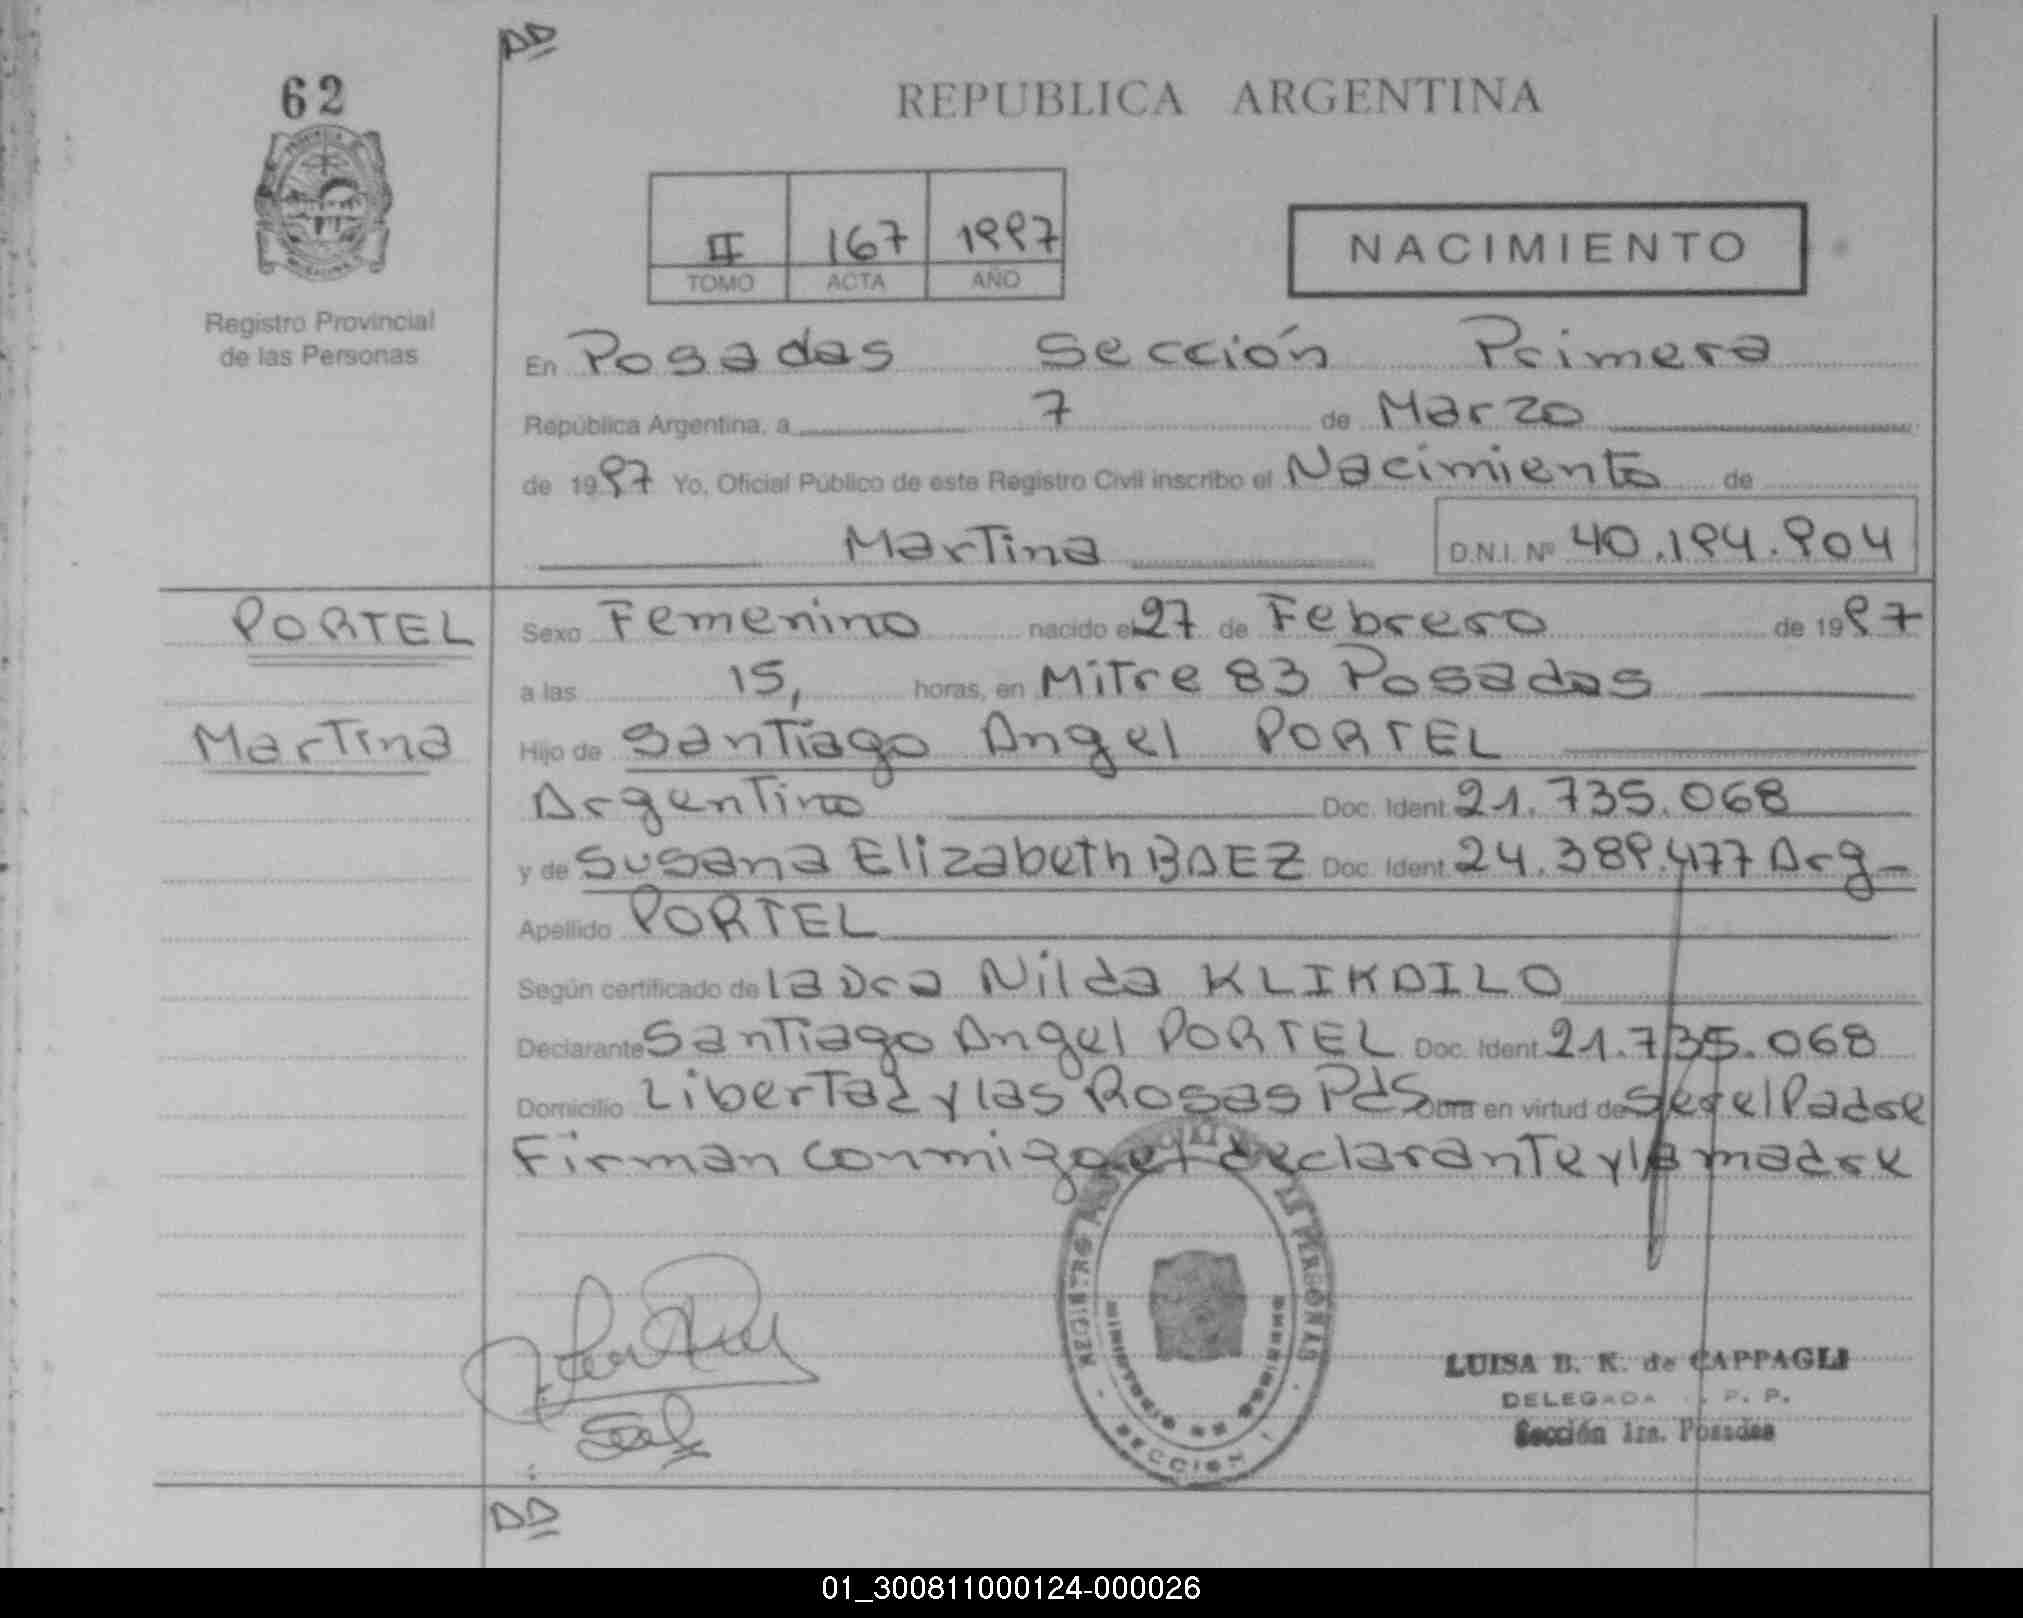 DD
62
REPUBLICA ARGENTINA
II 167 1997
TOMO ACTA AÑO
NACIMIENTO
Registro Provincial
de las Personas
En Posadas Sección Primera
República Argentina, a 7 de Marzo
de 1997 Yo, Oficial Público de este Registro Civil inscribo el Nacimiento de
Martina D.N.I. Nº 40.194.904
PORTEL
Sexo Femenino nacido el 27 de Febrero de 1997
a las 15, horas, en Mitre 83 Posadas
Martina
Hijo de Santiago Angel PORTEL
Argentino Doc. Ident. 21.735.068
y de Susana Elizabeth BAEZ Doc. Ident. 24.389.477 Arg
Apellido PORTEL
Según certificado de la Dra Nilda KLIKAILO
Declarante Santiago Angel PORTEL Doc. Ident. 21.735.068
Domicilio Libertad y las Rosas Pds Obra en virtud de ser el Padre
Firman conmigo el declarante y la madre
LUISA B. K. de CAPPAGLI
DELEGADA P. P.
Sección 1ra. Posadas
SECCION 1
DD
01_300811000124-000026